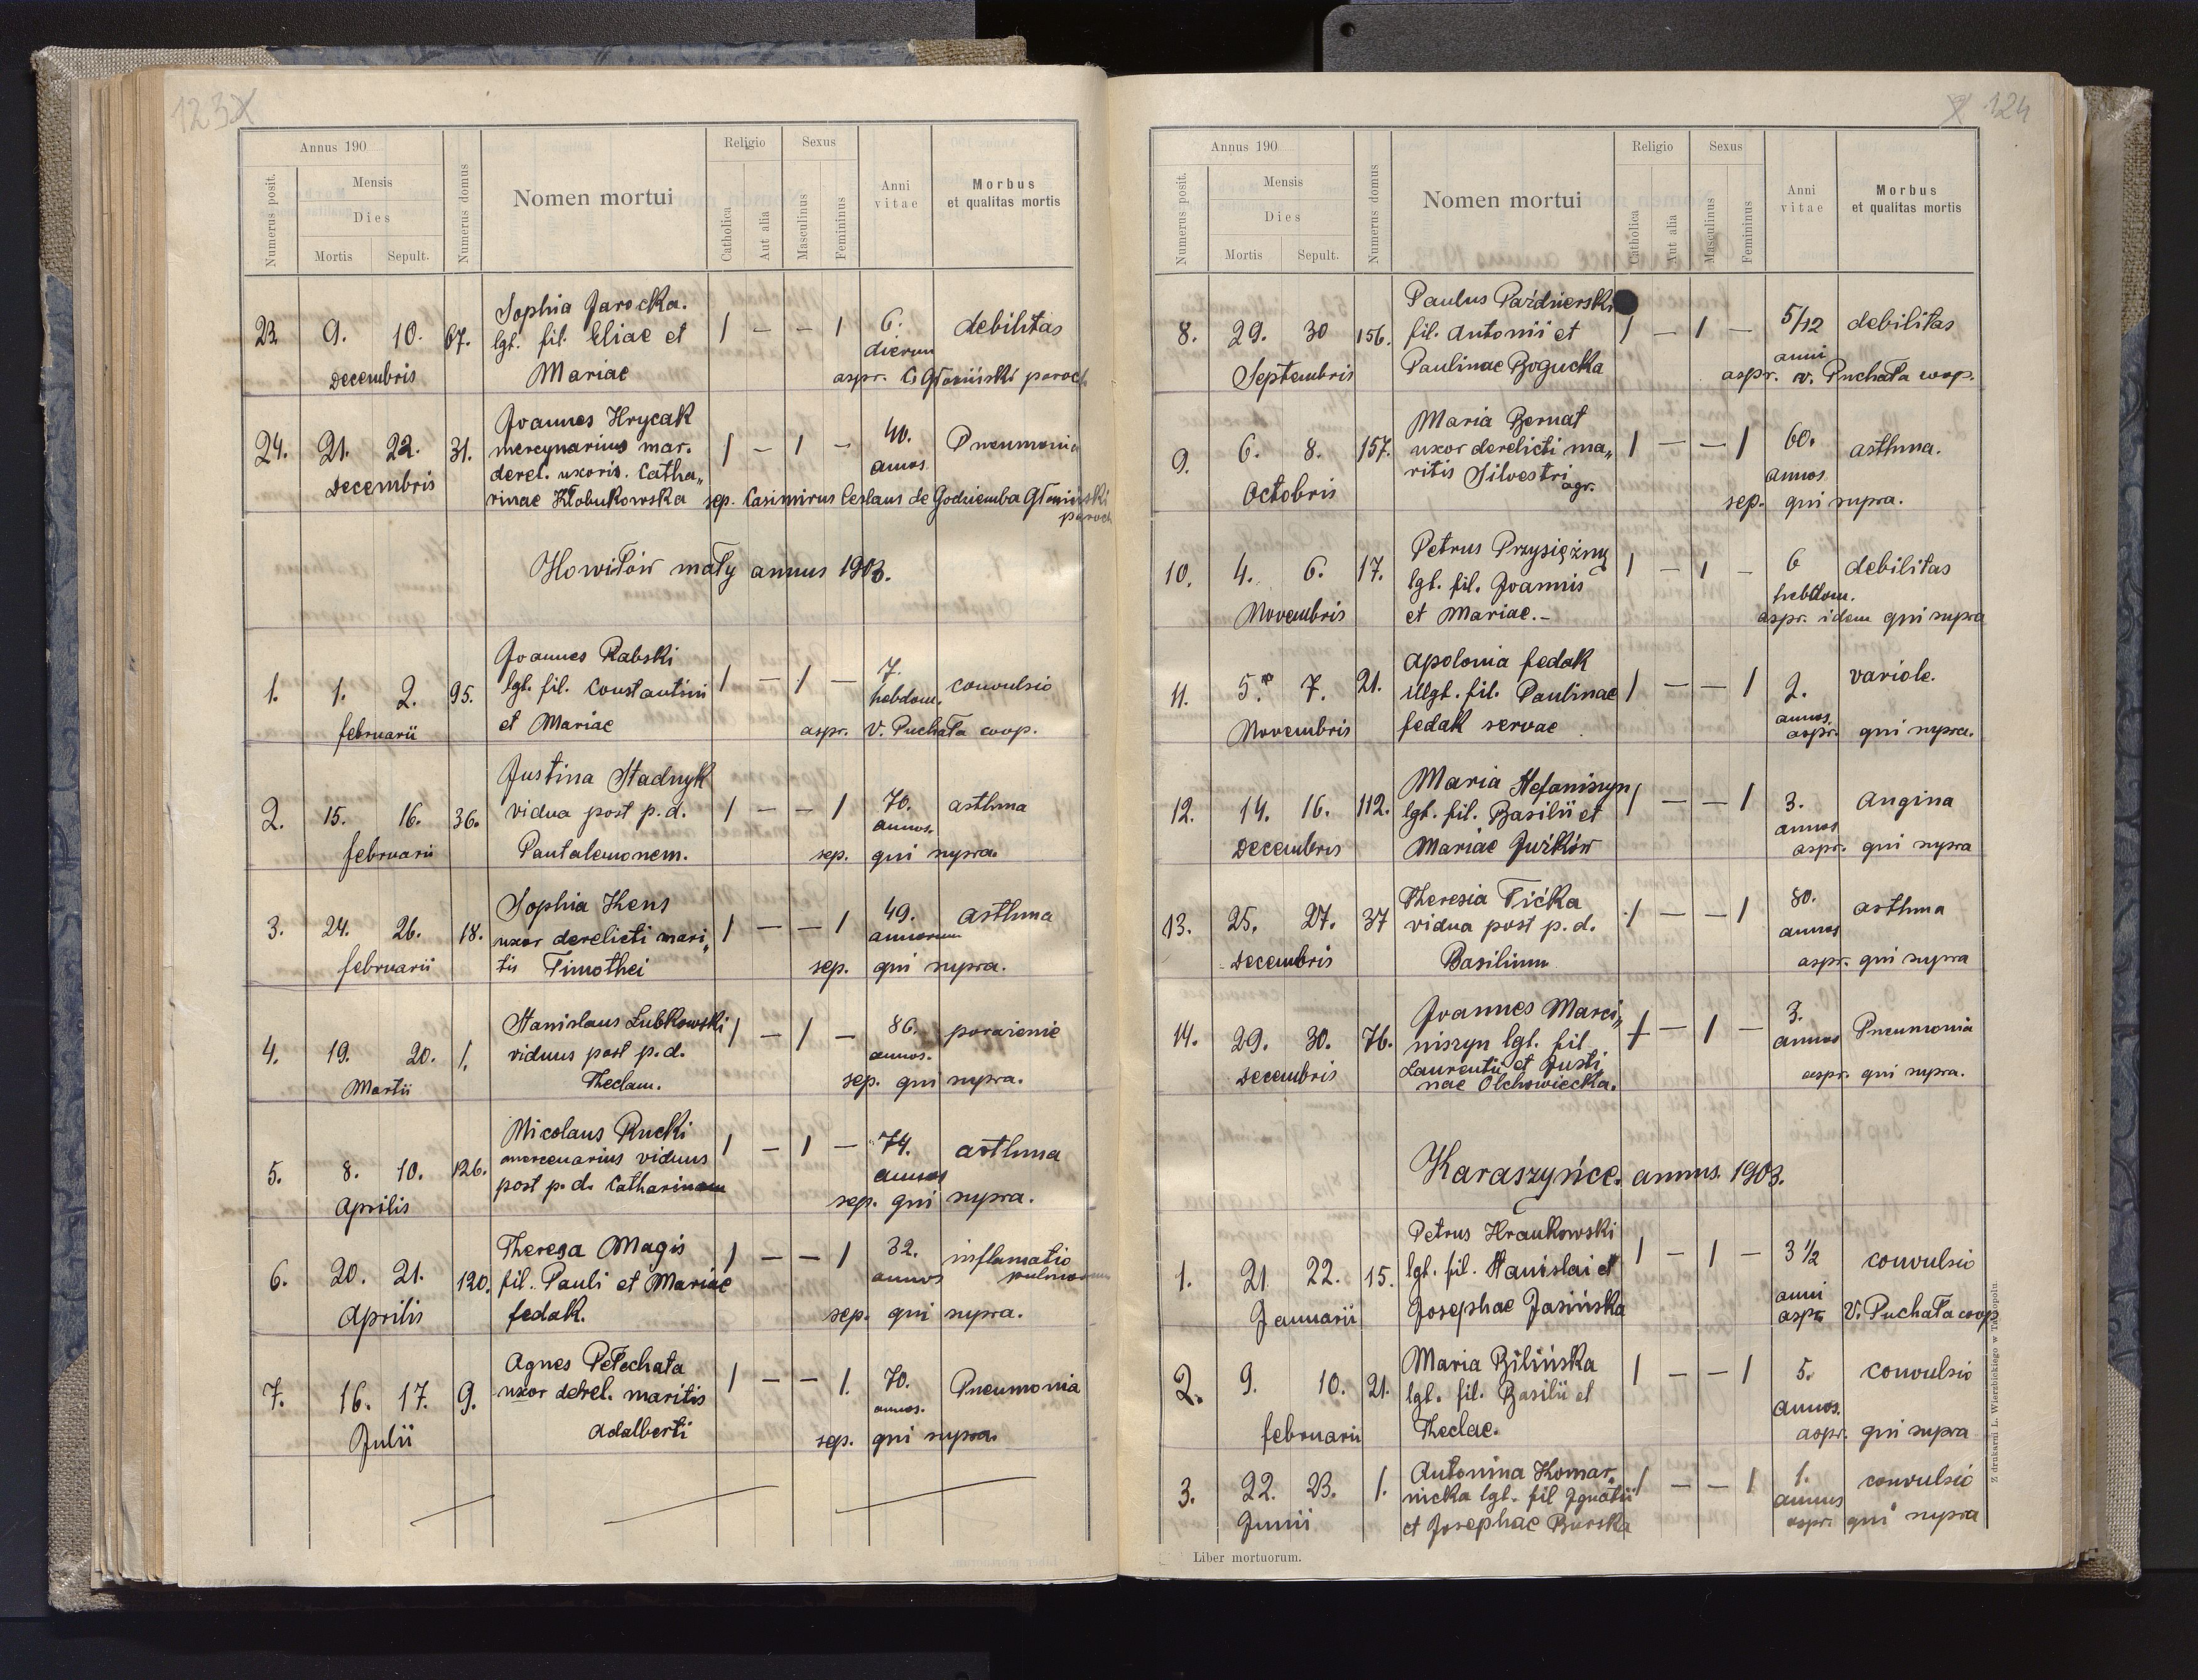 123
Annus 190
Numerus posit.
Mensis
Dies
Mortis Sepult.
Numerus domus
Nomen mortui
Religio
Catholica
Aut alia
Sexus
Masculinus
Femininus
Anni vitae
Morbus et qualitas mortis
23. 9. 10. 67. Sophia Jarocka. 1 – – 1 6. debilitas
lgt. fil. Eliae et dierum
Decembris Mariae aspr. C. Głoziński paroch
24. 21. 22. 31. Joannes Hrycak 1 – 1 – 40. Pneumonia
mercynarius mar. annos
Decembris derel. uxoris. Catha„
rinae Kłobukowska sep. Casimirus Ceslaus de Godziemba
paroch
Howiłów mały annus 1903.
1. 1. 2. 95. Joannes Rabski 1 – 1 – 7. convulsio
lgt. fil. Constantini hebdom.
februarii et Mariae aspr. V. Puchała coop.
2. 15. 16. 36. Justina Stadnyk 1 – – 1 70. asthma
vidua post p. d. annos.
februarii Pantalemonem. sep. qui supra.
3. 24. 26. 18. Sophia Kens 1 – – 1 49. asthma
uxor derelicti mari„ annorum
februarii tis Timothei sep. qui supra.
4. 19. 20. 1. Stanislaus Lubkowski 1 – 1 – 86. porażenie
viduus post p. d. annos.
Martii Theclam. sep. qui supra.
5. 8. 10. 126. Nicolaus Rucki 1 – 1 – 74. asthma
mercenarius viduus annos
Aprilis post p. d. Catharinam sep. qui supra.
6. 20. 21. 120. Theresa Magis 1 – – 1 32. inflamatio
fil. Pauli et Mariae annos pulmonum
Aprilis fedak. sep. qui supra.
7. 16. 17. 9. Agnes Pełechata 1 – – 1. 70. Pneumonia
uxor derel. maritis annos.
Julii Adalberti sep. qui supra.
124
Annus 190
Numerus posit.
Mensis
Dies
Mortis Sepult.
Numerus domus
Nomen mortui
Religio
Catholica
Aut alia
Sexus
Masculinus
Femininus
Anni vitae
Morbus et qualitas mortis
8. 29. 30 156. Paulus Paździerski 1 – 1 – 5/12 debilitas
fil. Antonii et anni
Septembris Paulinae Bogucka aspr. v. Puchała coop.
9. 6. 8. 157. Maria Bernat 1 – – 1 60. asthma.
uxor derelicti ma„ annos
Octobris ritis Silvestri agr. sep. qui supra.
10. 4. 6. 17. Petrus Przysiężny 1 – 1 – 6 debilitas
lgt. fil. Joannis hebdom.
Novembris et Mariae.– aspr. idem qui supra
11. 5. 7. 21. Apolonia fedak 1 – – 1 2. variole.
illgt. fil. Paulinae annos.
Novembris fedak servae aspr. qui supra.
12. 14. 16. 112. Maria Stefaniszyn 1 – – 1 3. Angina
lgt. fil. Basilii et annos
Decembris Mariae Juźków aspr. qui supra
13. 25. 27. 37 Theresia Tićka 1 – – 1 80. asthma
vidua post p. d. annos
Decembris Basilium aspr. qui supra
14. 29. 30. 76. Joannes Marci„ 1 – 1 – 3. Pneumonia
niszyn lgt. fil annos
Laurentii et Justi
Decembris nae Olchowiecka. aspr. qui supra.
Karaszyńce. annus. 1903.
1. 21. 22. 15. Petrus Hraukowski 1 – 1 – 3 1/2 convulsio
lgt. fil. Stanislai et anni
Januarii Josephae Jasińska aspr. V. Puchała coop
2. 9. 10. 21. Maria Bilińska 1 – – 1 5. convulsio
lgt. fil. Basilii et annos.
februarii Theclae. aspr. qui supra
3. 22. 23. 1. Antonina Komar„ 1 – – 1 1. convulsio
nicka lgt. fil Ignatii annus
Junii et Josephae Burska aspr. qui supra
Liber mortuorum.
Z drukarni L. Wierzbickiego w Tarnopolu.